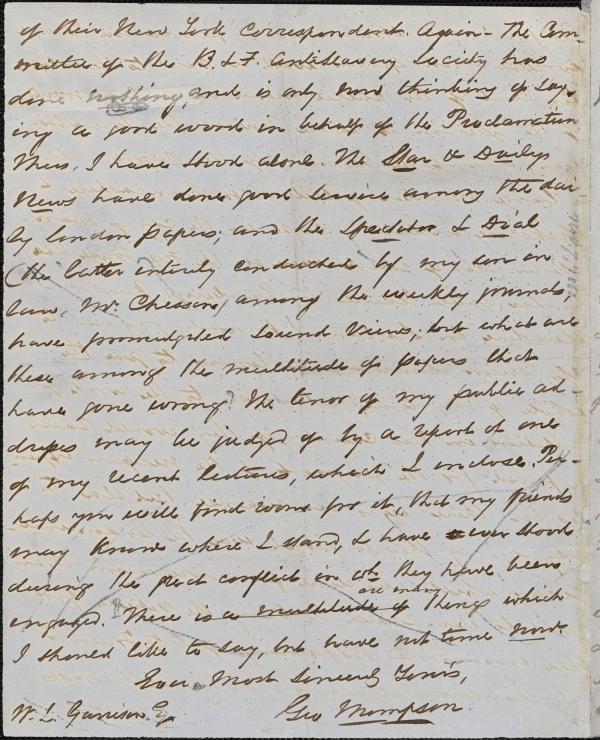 of their New York correspondent. Again - The Com-
mittee of the B. & F. Antislavery Society has
done nothing, and is only now thinking of say-
ing a good word in behalf of the Proclamation
Thus, I have stood alone. The Star & Daily
News have done good service among the dai
ly London papers; and the Spectator & Dial
(the latter entirely conducted by my son in
law, Mr. Chesson) among the weekly journals,
have promulgated sound views; but what are
these among the multitude of papers that
have gone wrong? The tenor of my public ad-
dresses may be judged of by a report of one
of my recent lectures, which I enclose. Per-
haps you will find room for it, that my friends
may know where I stand, & have ever stood
during the great conflict in wh. they have been
engaged. There is a multitude of are many things which
I should like to say, but have not time now.
Ever, Most Sincerely Yours,
W. L. Garrison Esq. Geo Thompson.